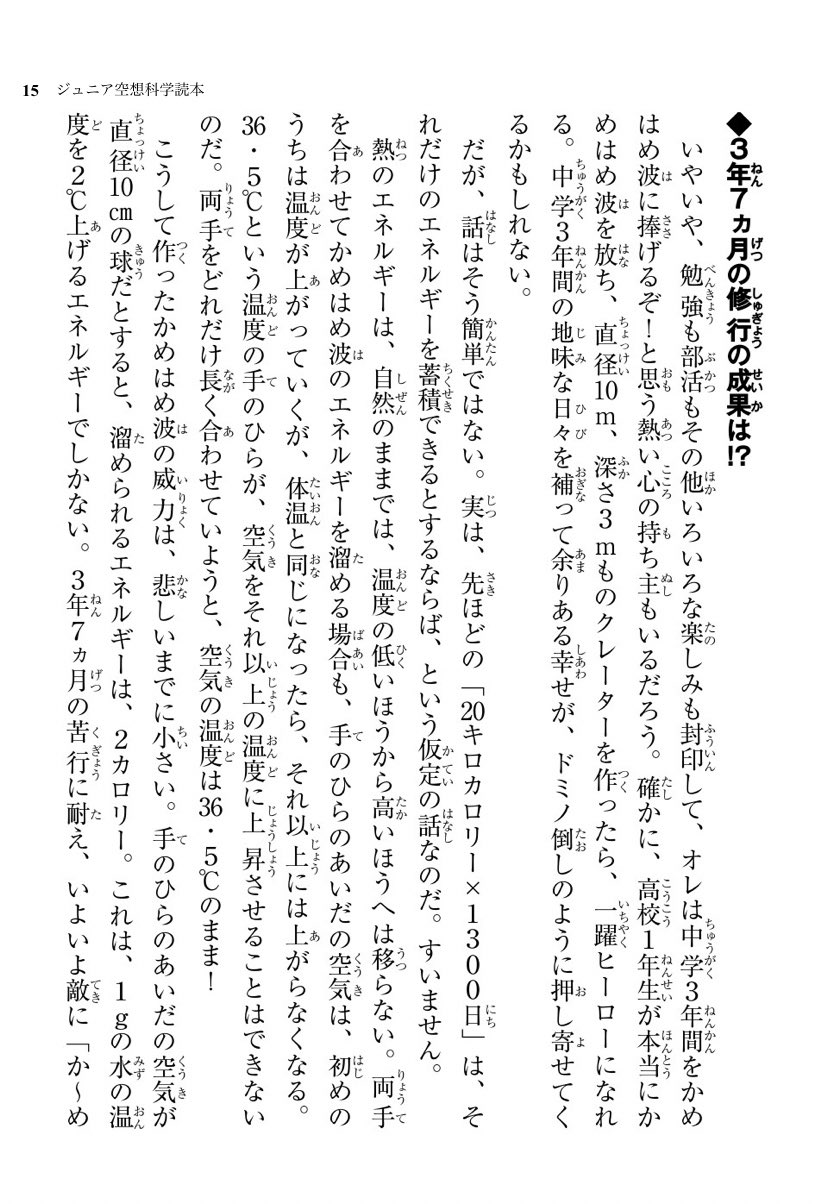 15 ジュニア空想科学読本
◆3年7ヵ月の修行の成果は!?
いやいや、勉強も部活もその他いろいろな楽しみも封印して、オレは中学3年間をかめ
はめ波に捧げるぞ！と思う熱い心の持ち主もいるだろう。確かに、高校1年生が本当にか
めはめ波を放ち、直径10m、深さ3mものクレーターを作ったら、一躍ヒーローになれ
る。中学3年間の地味な日々を補って余りある幸せが、ドミノ倒しのように押し寄せてく
るかもしれない。
だが、話はそう簡単ではない。実は、先ほどの「20キロカロリー×1300日」は、そ
れだけのエネルギーを蓄積できるとするならば、という仮定の話なのだ。すいません。
熱のエネルギーは、自然のままでは、温度の低いほうから高いほうへは移らない。両手
を合わせてかめはめ波のエネルギーを溜める場合も、手のひらのあいだの空気は、初めの
うちは温度が上がっていくが、体温と同じになったら、それ以上には上がらなくなる。
36・5℃という温度の手のひらが、空気をそれ以上の温度に上昇させることはできない
のだ。両手をどれだけ長く合わせていようと、空気の温度は36・5℃のまま！
こうして作ったかめはめ波の威力は、悲しいまでに小さい。手のひらのあいだの空気が
直径10cmの球だとすると、溜められるエネルギーは、2カロリー。これは、1gの水の温
度を2℃上げるエネルギーでしかない。3年7ヵ月の苦行に耐え、いよいよ敵に「か～め